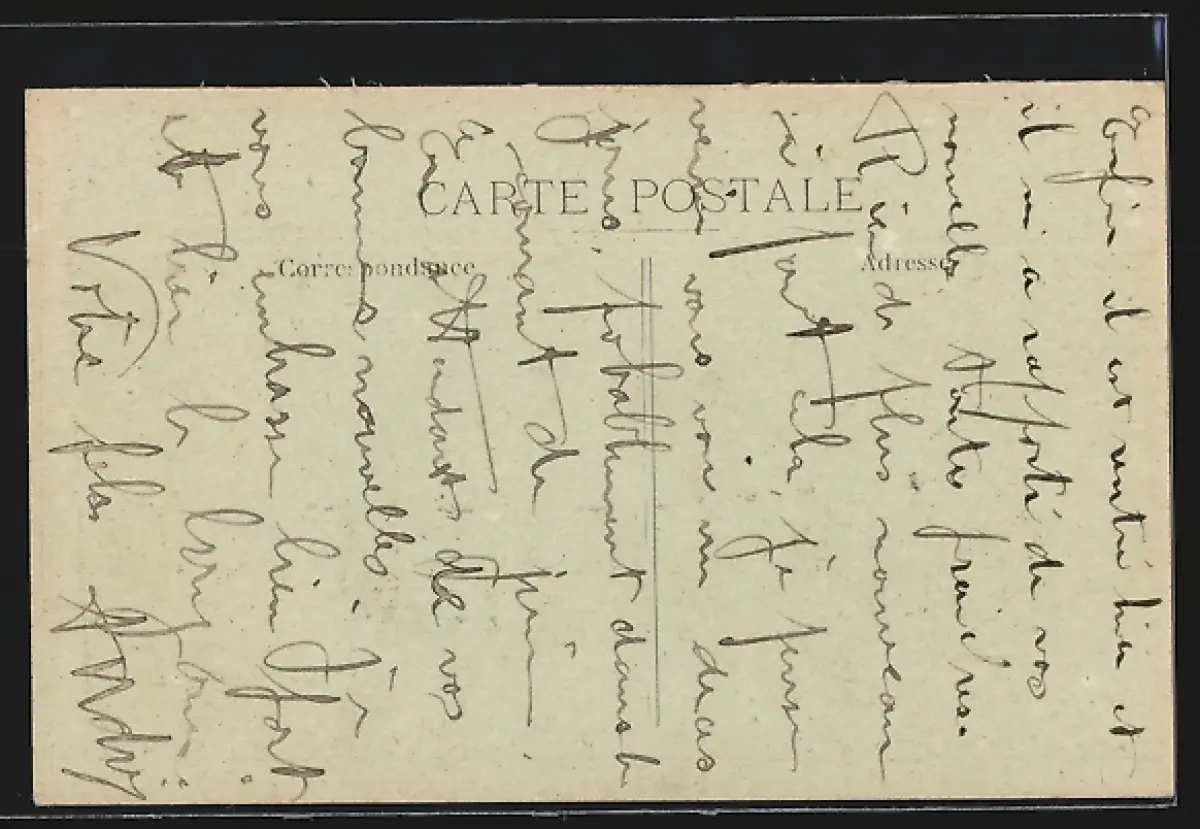 CARTE POSTALE
Correspondance
Adresse
Enfin il est rentré hier et
il m'a rapporté de vos
nouvelles toutes fraiches.
Rien de plus nouveau
à part cela. Je pense
venir vous voir un de ces
jours probablement dans le
courant de juin.
En attendant de vos
bonnes nouvelles, je
vous embrasse bien fort
et bien
Votre fils André